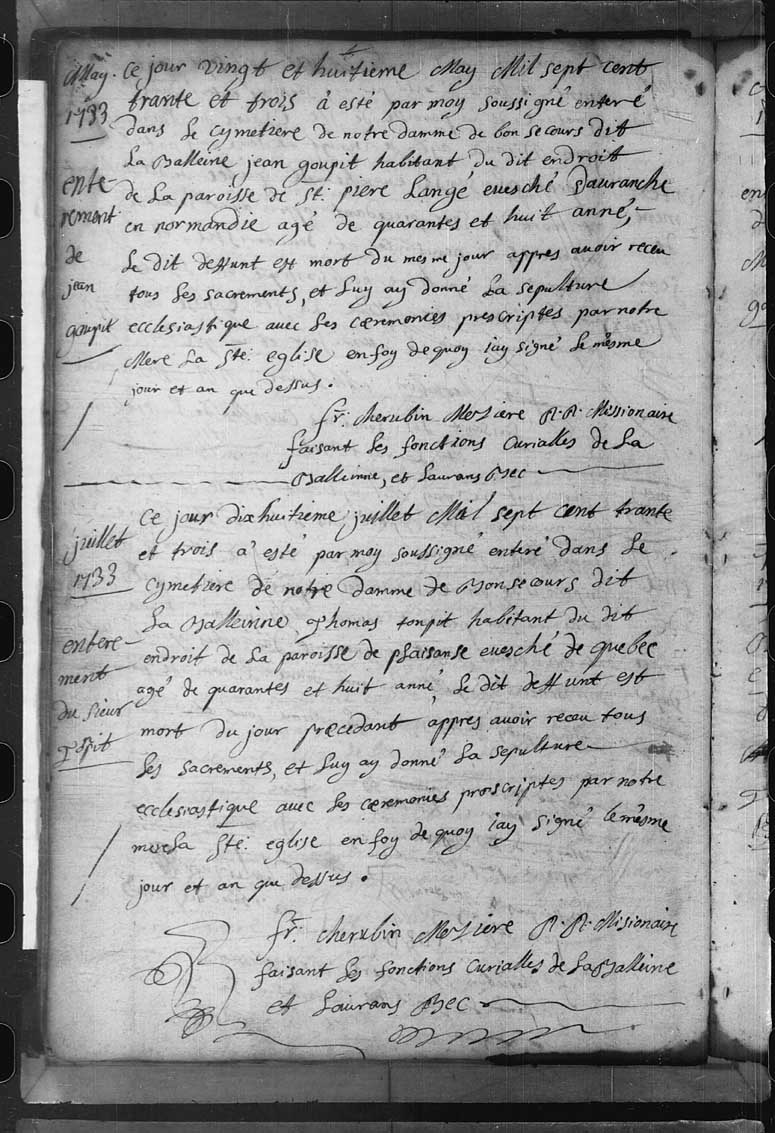 May
1733
ente-
rement
de
jean
goupit
Ce jour vingt et huitieme May Mil sept cent
trante et trois à esté par moy soussigné enteré
dans le cymetiere de notre damme de bon secours dit
La Balleine jean goupit habitant du dit endroit
de La paroisse de St. piere Langé evesché dauranche
en normandie agé de quarantes et huit anné,
Le dit deffunt est mort du mesme jour appres avoir receu
tous Les sacrements, et Luy ay donné La sepulture
ecclesiastique avec Les cæremonies prescriptes par notre
Mere La Ste. eglise en foy de quoy jay signé le mesme
jour et an que dessus.
fr. cherubin Mesiere R. R. Missionaire
faisant Les fonctions Curialles de La
Balleinne, et Laurans Bec
juillet
1733
entere-
ment
du sieur
Topit
Ce jour dixhuitieme juillet Mil sept cent trante
et trois a esté par moy soussigné enteré dans Le
Cymetiere de notre damme de Bonsecours dit
La Balleinne Thomas toupit habitant du dit
endroit de La paroisse de plaisanse evesché de quebec
agé de quarantes et huit anné Le dit deffunt est
mort du jour præcedant appres avoir receu tous
Les sacrements, et Luy ay donné La sepulture
ecclesiastique avec Les cæremonies præscriptes par notre
mere La Ste. eglise en foy de quoy jay signé le mesme
jour et an que dessus.
fr. cherubin Mesiere R. R. Misionaire
faisant Les fonctions Curialles de La Balleine
et Laurans Bec